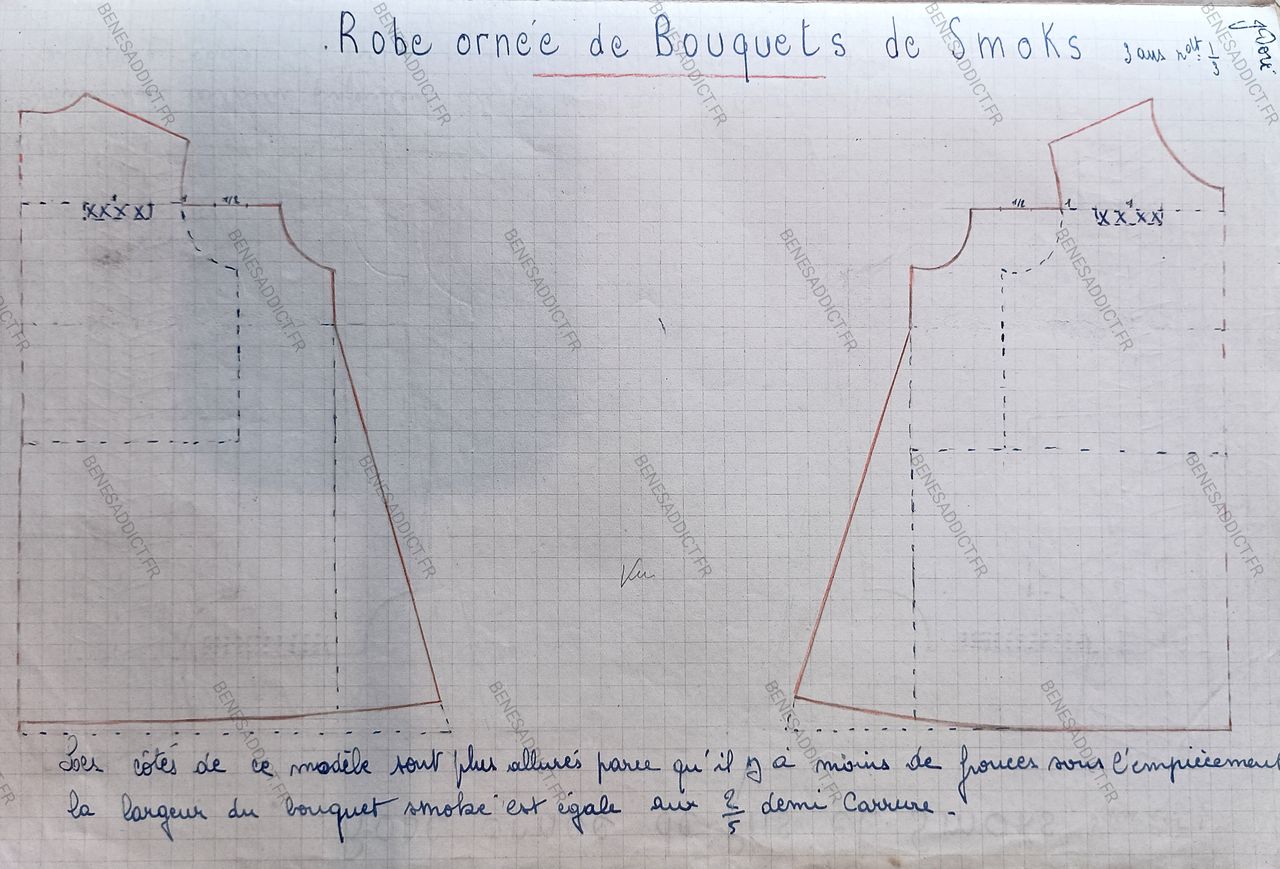 Robe ornée de Bouquets de Smoks 3 ans rdt: 1/3
1/2
1/2
X X X X
X X X X
Vu
Les côtés de ce modèle sont plus allurés parce qu'il y a moins de fronces sous l'empiècement
la largeur du bouquet smoké est égale aux 2/5 demi Carrure.
BENESADDICT.FR